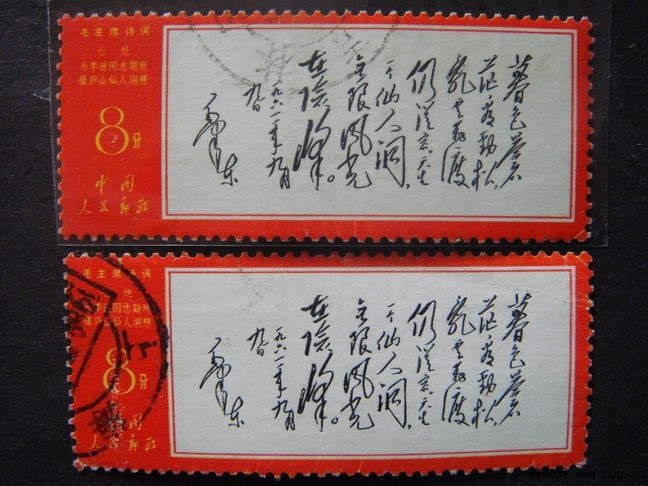 毛主席诗词
七绝
为李进同志题所
摄庐山仙人洞照
8分
中国
人民邮政
暮色苍
茫看劲松,
乱云飞渡
仍从容。天生
一个仙人洞,
无限风光
在险峰。
一九六一年九月
九日
毛泽东
毛主席诗词
绝
李进同志题所
摄庐山仙人洞照
8分
中国
人民邮政
暮色苍
茫看劲松,
乱云飞渡
仍从容。天生
一个仙人洞,
无限风光
在险峰。
一九六一年九月
九日
毛泽东